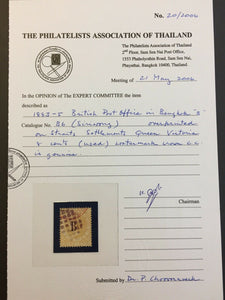 No. 20/2006
THE PHILATELISTS ASSOCIATION OF THAILAND
The Philatelists Association of Thailand
2nd Floor, Sam Sen Nai Post Office,
1353 Phaholyothin Road, Sam Sen Nai,
Phayathai, Bangkok 10400, Thailand
Meeting of 21 May 2006
In the OPINION of The EXPERT COMMITTEE the item
described as
1883-5 British Post Office in Bangkok "B"
Catalogue No. B6 overprinted
on Straits Settlements Queen Victoria
8 cents (used) watermark crown C.C.
is genuine
B
Chairman
Submitted by Dr. P.